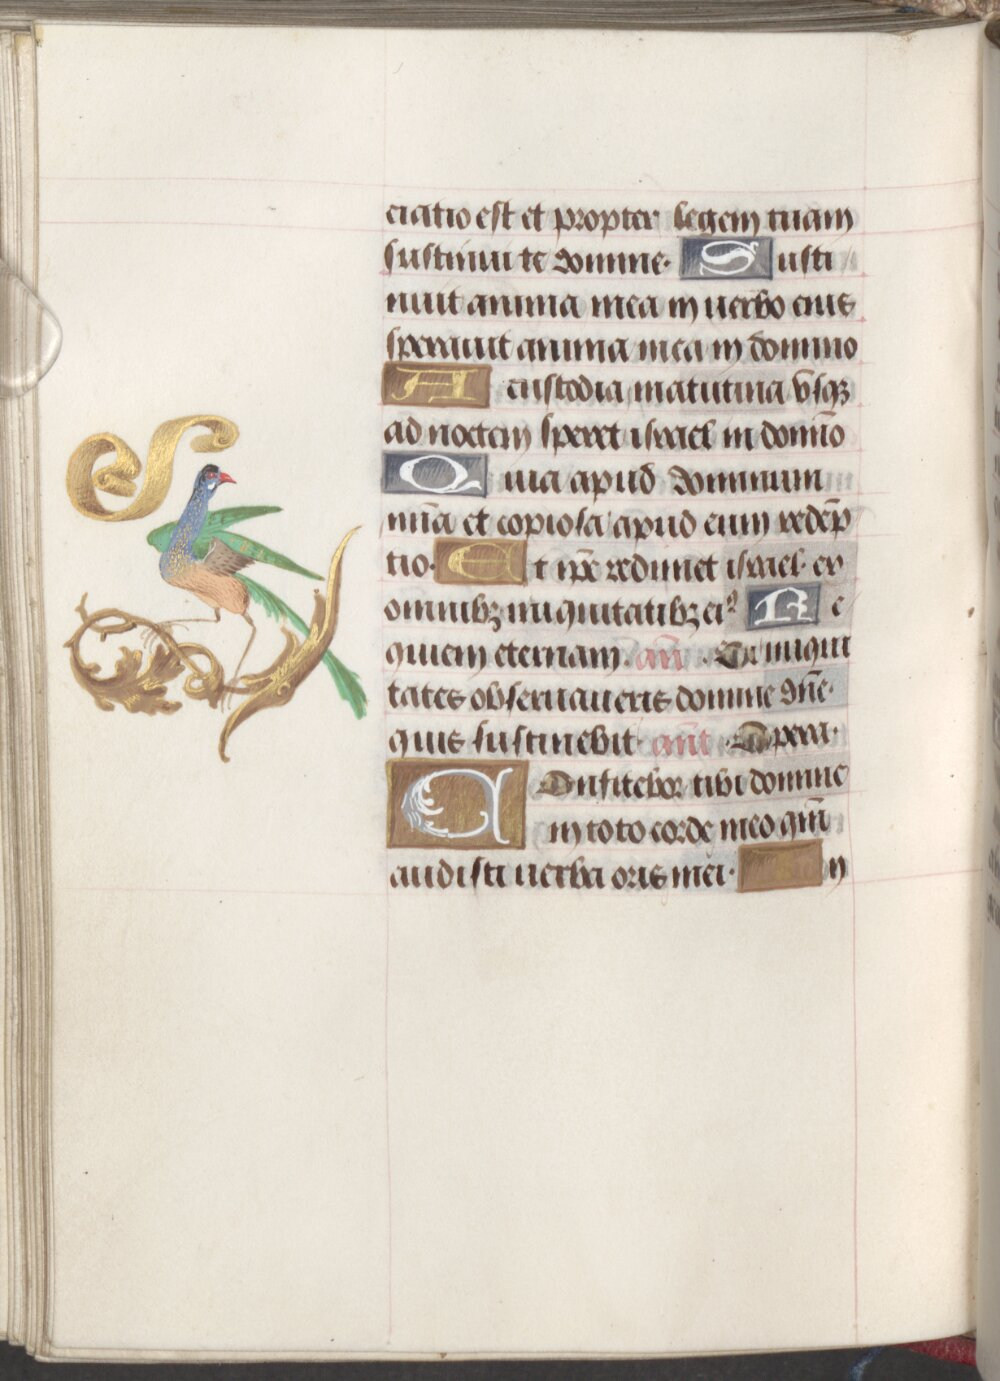 ciatio est et propter legem tuam
sustinui te domine· Susti
nuit anima mea in uerbo eius
speravit anima mea in domino
A custodia matutina vsqȝ
ad noctem speret israel in domīo
Quia apud dominum
mīa et copiosa apud eum redēp
tio· Et ip̄e redimet israel· ex
omnibȝ iniquitatibȝ eiꝰ Re
quiem eternam. an̄ ·Si iniqui
tates obseruaueris domine dn̄e·
quis sustinebit· an̄t ·Opera·
Confitebor tibi domine
in toto corde meo qm̄
audisti uerba oris mei· In